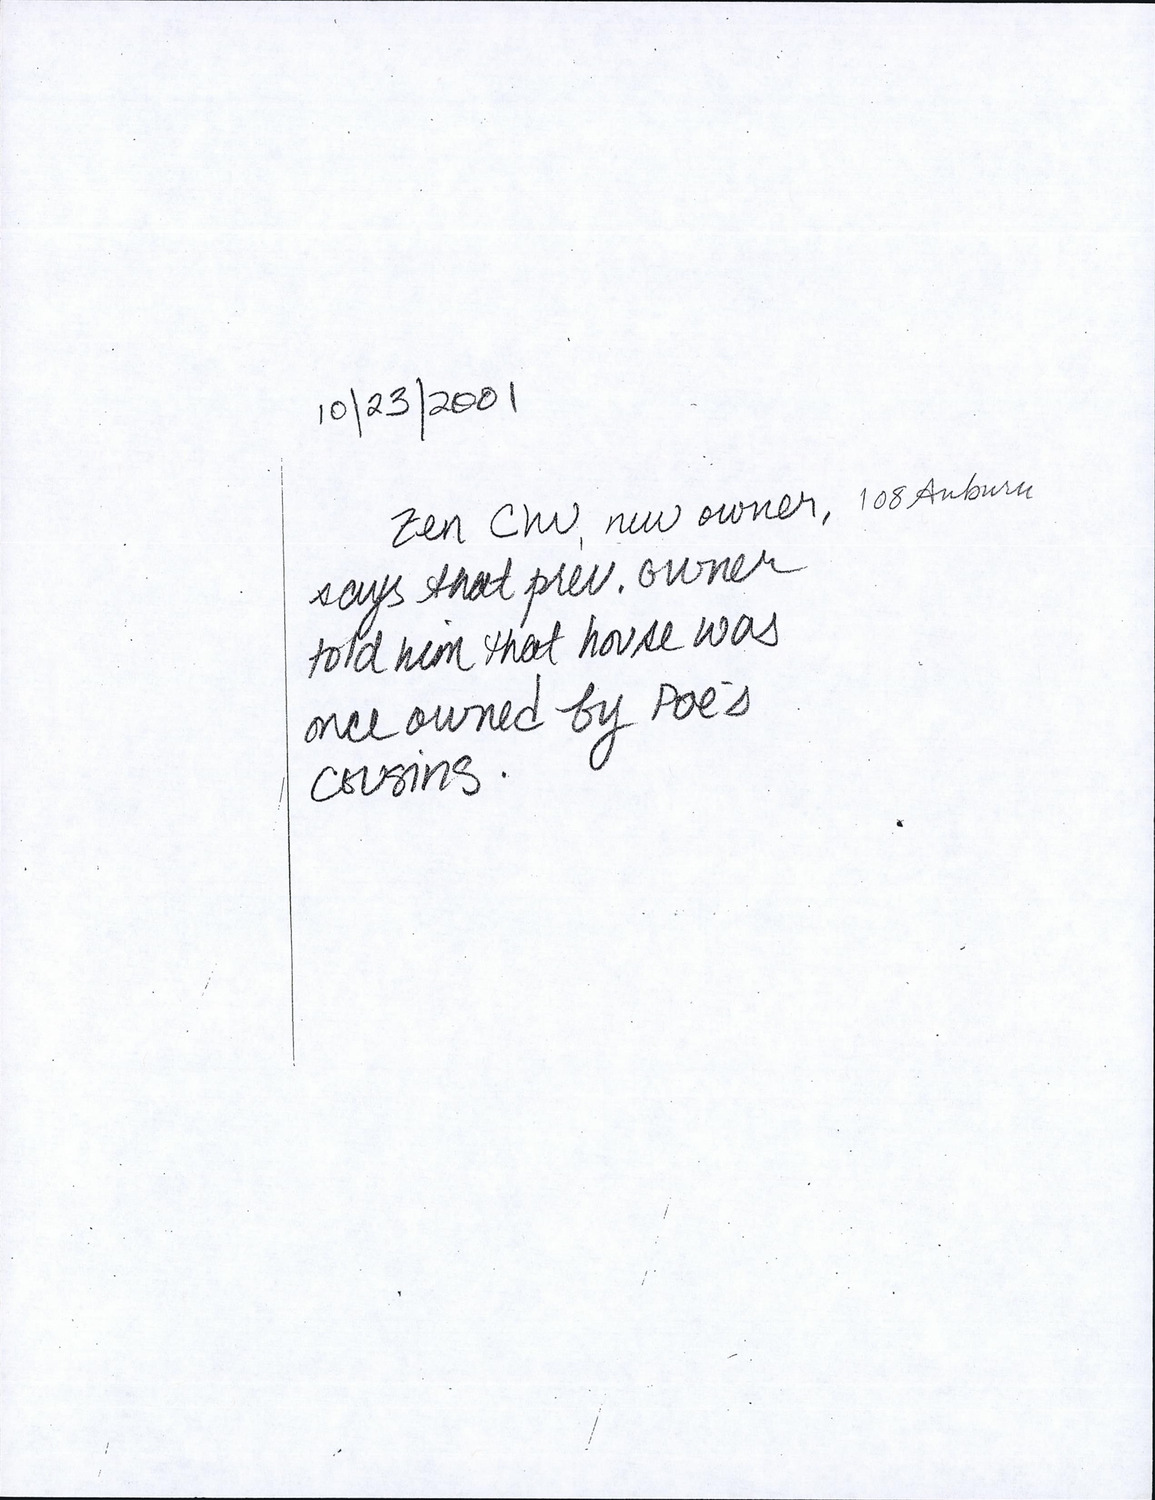 10/23/2001
Zen Chu, new owner, 108 Auburn
says that prev. owner
told him that house was
once owned by Poe's
cousins.